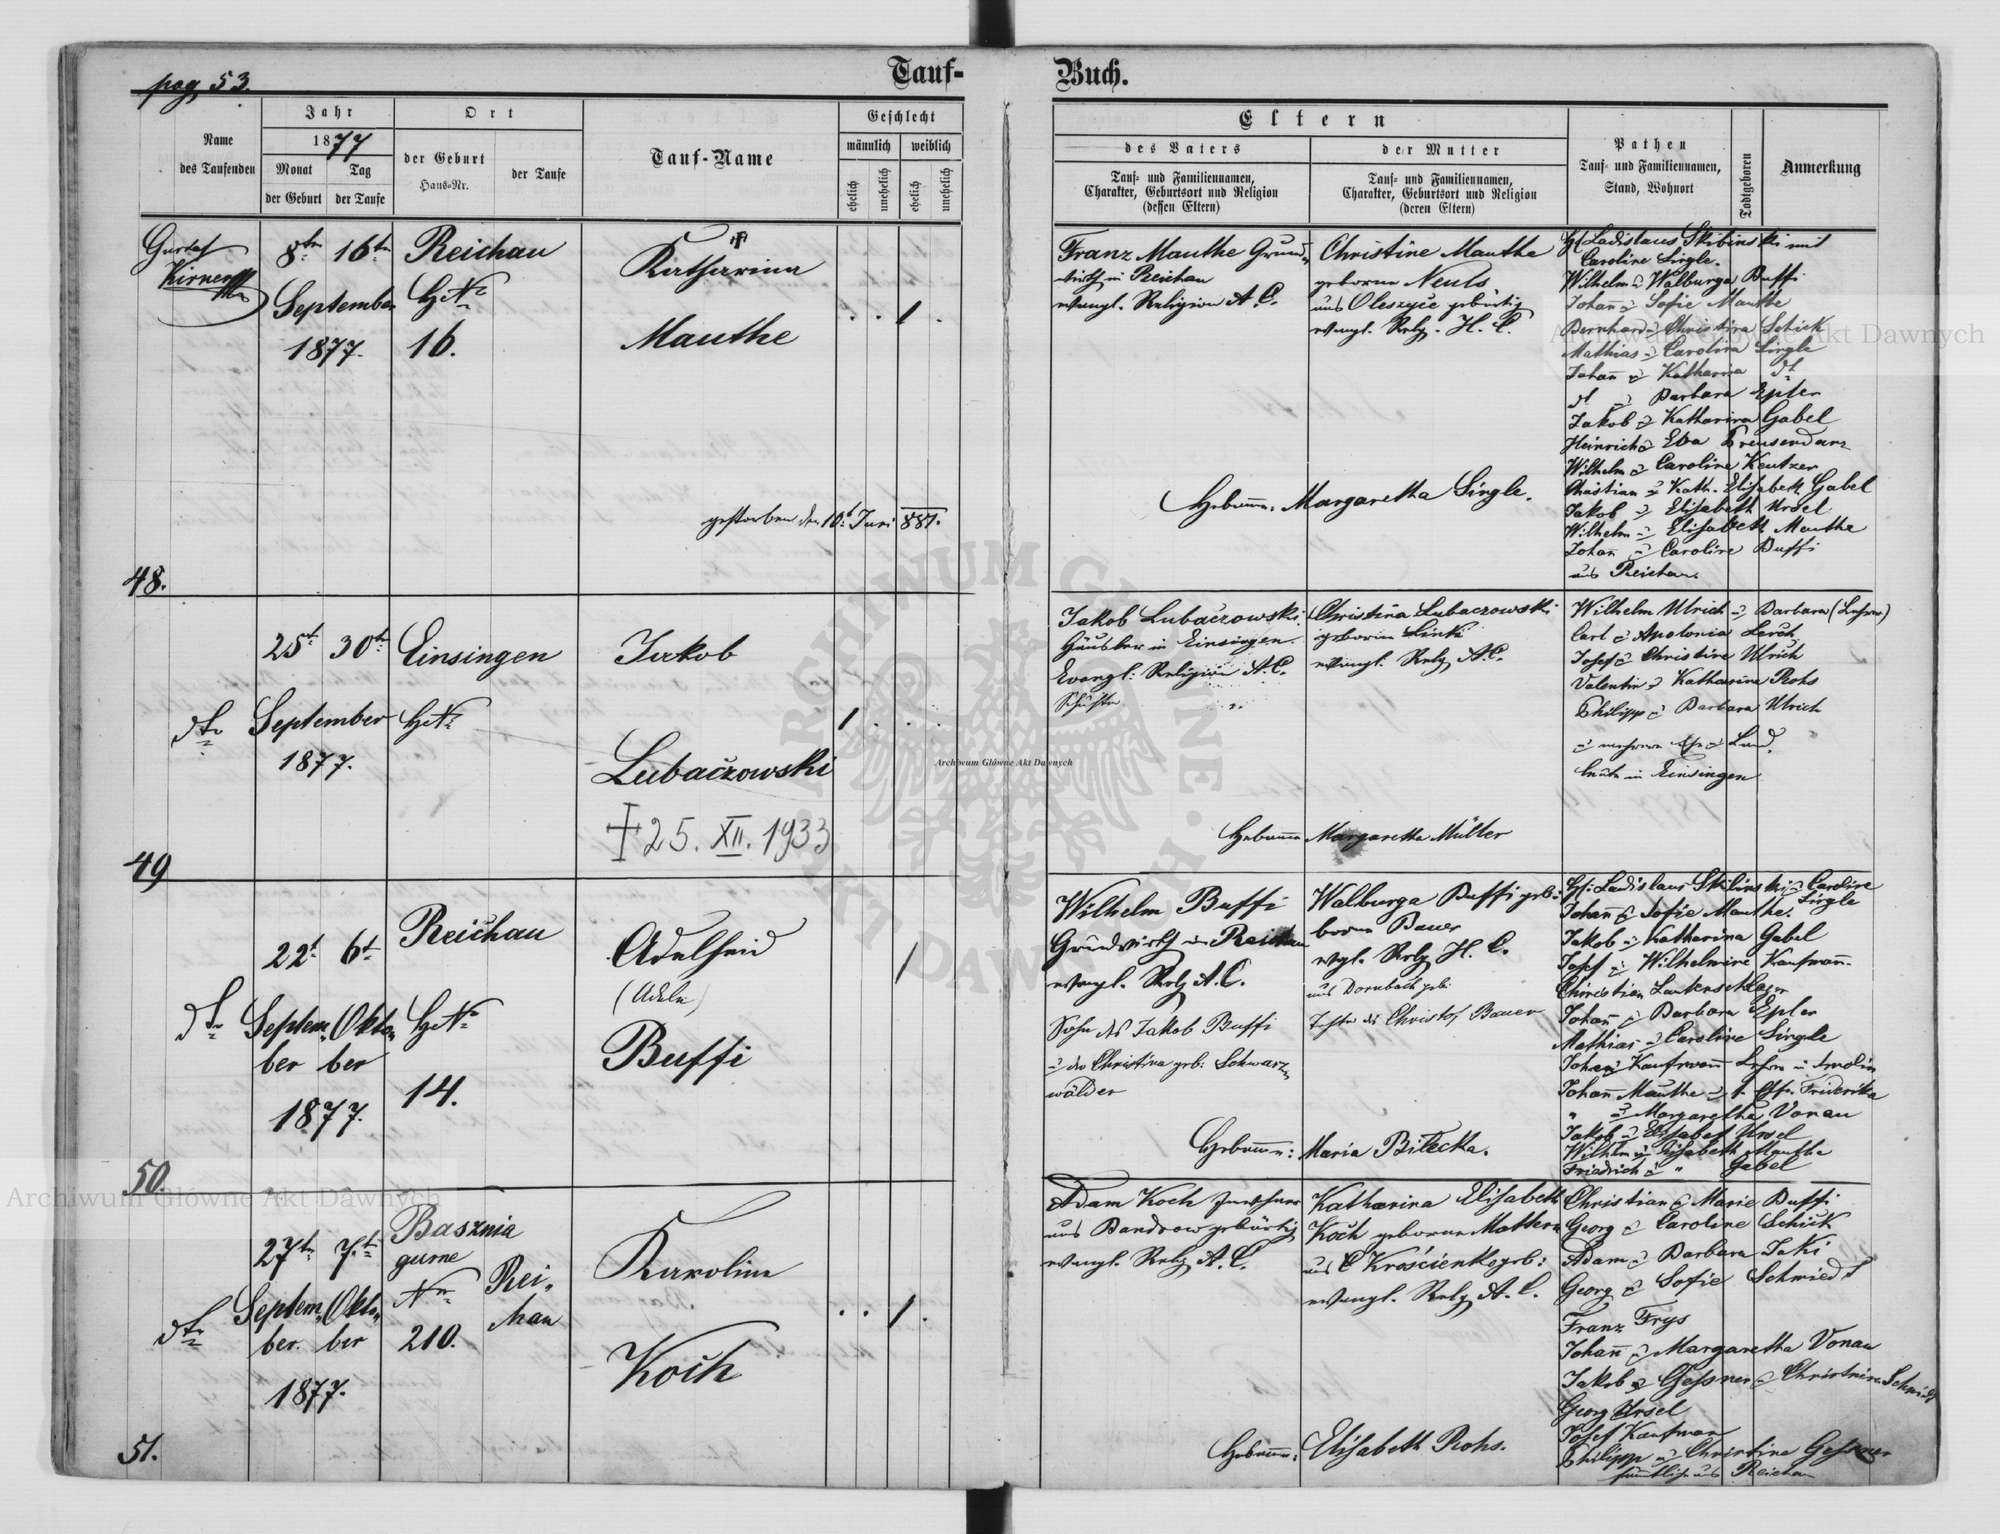 pag. 53.
Tauf-
Buch.
Name
des Taufenden
Jahr
1877
Monat
der Geburt
Tag
der Taufe
Ort
der Geburt
Haus-Nr.
der Taufe
Tauf-Name
Geschlecht
männlich
weiblich
ehelich
unehelich
ehelich
unehelich
Eltern
des Vaters
Tauf- und Familiennamen,
Charakter, Geburtsort und Religion
(dessen Eltern)
der Mutter
Tauf- und Familiennamen,
Charakter, Geburtsort und Religion
(deren Eltern)
Pathen
Tauf- und Familiennamen,
Stand, Wohnort
Todtgeboren
Anmerkung
48.
Gustaf
8tn 16tn
September
1877.
Reichau
HN
16.
Katharina
Mauthe
1
gestorben den 10t Juni 881.
Franz Mauthe Grund-
wirth in Reichau
evangl. Religion A. C.
Christine Mauthe
geborene
aus Oleszyce gebürtig
evangl. Relg. H. C.
Hebamme: Margaretha Single.
H Ladislaus Skibinski mit
Caroline Single.
Wilhelm u Walburga Buffi
Johann u Sofie Mauthe
Bernhard u Christina Schick
Mathias u Carolina Single
Johann u Katharina dt
dt u Barbara Epler
Jakob u Katharina Gabel
Heinrich u Eva
Wilhelm u Caroline
Christian u Kath. Elisabeth Gabel
Jakob u Elisabeth Ursel
Wilhelm u Elisabeth Mauthe
Johann u Caroline Buffi
aus Reichau.
49
dto
25t 30tn
September
1877.
Einsingen
HN
Jakob
Lubaczowski
† 25. XII. 1933
1
Jakob Lubaczowski
Häusler in Einsingen.
Evangl. Religion A. C.
Schuster
Christina Lubaczowski
geborene Linki
evangl. Relg A. C.
Hebamme Margaretha Müller
Wilhelm Ulrich u Barbara (Lehrer)
Carl u Apolonia Lerch
Josef u Christine Ulrich
Valentin u Katharina Rohs
Philipp u Barbara Ulrich
u mehrere
leute in Einsingen
50.
dto
22t 6t
Septem- Okto-
ber ber
1877.
Reichau
HN
14.
Adelheid
(Adele)
Buffi
1
Wilhelm Buffi
Grundwirth in Reichau
evangl. Relg A. C.
Sohn des Jakob Buffi
u der Christina geb: Schwarz-
wälder
Walburga Buffi ge-
borene Bauer
evgl. Relg H. C.
aus Dornbach geb.
Tochter des Christof Bauer
Hebamme: Maria Bilecka.
H: Ladislaus Skibinski u Caroline
Single
Johann u Sofie Mauthe.
Jakob u Katharina Gabel
Josef u Wilhelmine Kaufmann.
Christian Lautenschlager
Johann u Barbara Epler
Mathias u Caroline Single
Johann Kaufmann Lehrer
Johann Mauthe Friderika
" u Margaretha Vonau
Jakob u Elisabet Ursel
Wilhelm u Elisabeth Mauthe
Friedrich u " Gabel
51.
dto
27tn 7.tn
Septem- Okto-
ber. ber
1877.
Basznia
gurne
Nr
210.
Rei-
chau
Karolina
Koch
1
Adam Koch
aus Bandrow gebürtig
evangl. Relg A. C.
Katharina Elisabeth
Koch geborene Mathern
aus Krościenko geb:
evangl. Relg A. C.
Hebamme: Elisabeth Rohs.
Christian u Marie Buffi
Georg u Caroline Schick
Adam u Barbara Jaki
Georg u Sofie Schmiedt
Franz Frys
Johann u Margaretha Vonau
Jakob Gessner u Christine Schmidt
Georg Ursel
Josef Kaufman
Philipp u Christine Gessner
sämtlich aus Reichau
Archiwum Główne Akt Dawnych
Archiwum Główne Akt Dawnych
Archiwum Główne Akt Dawnych
ARCHIWUM GŁÓWNE AKT DAWNYCH